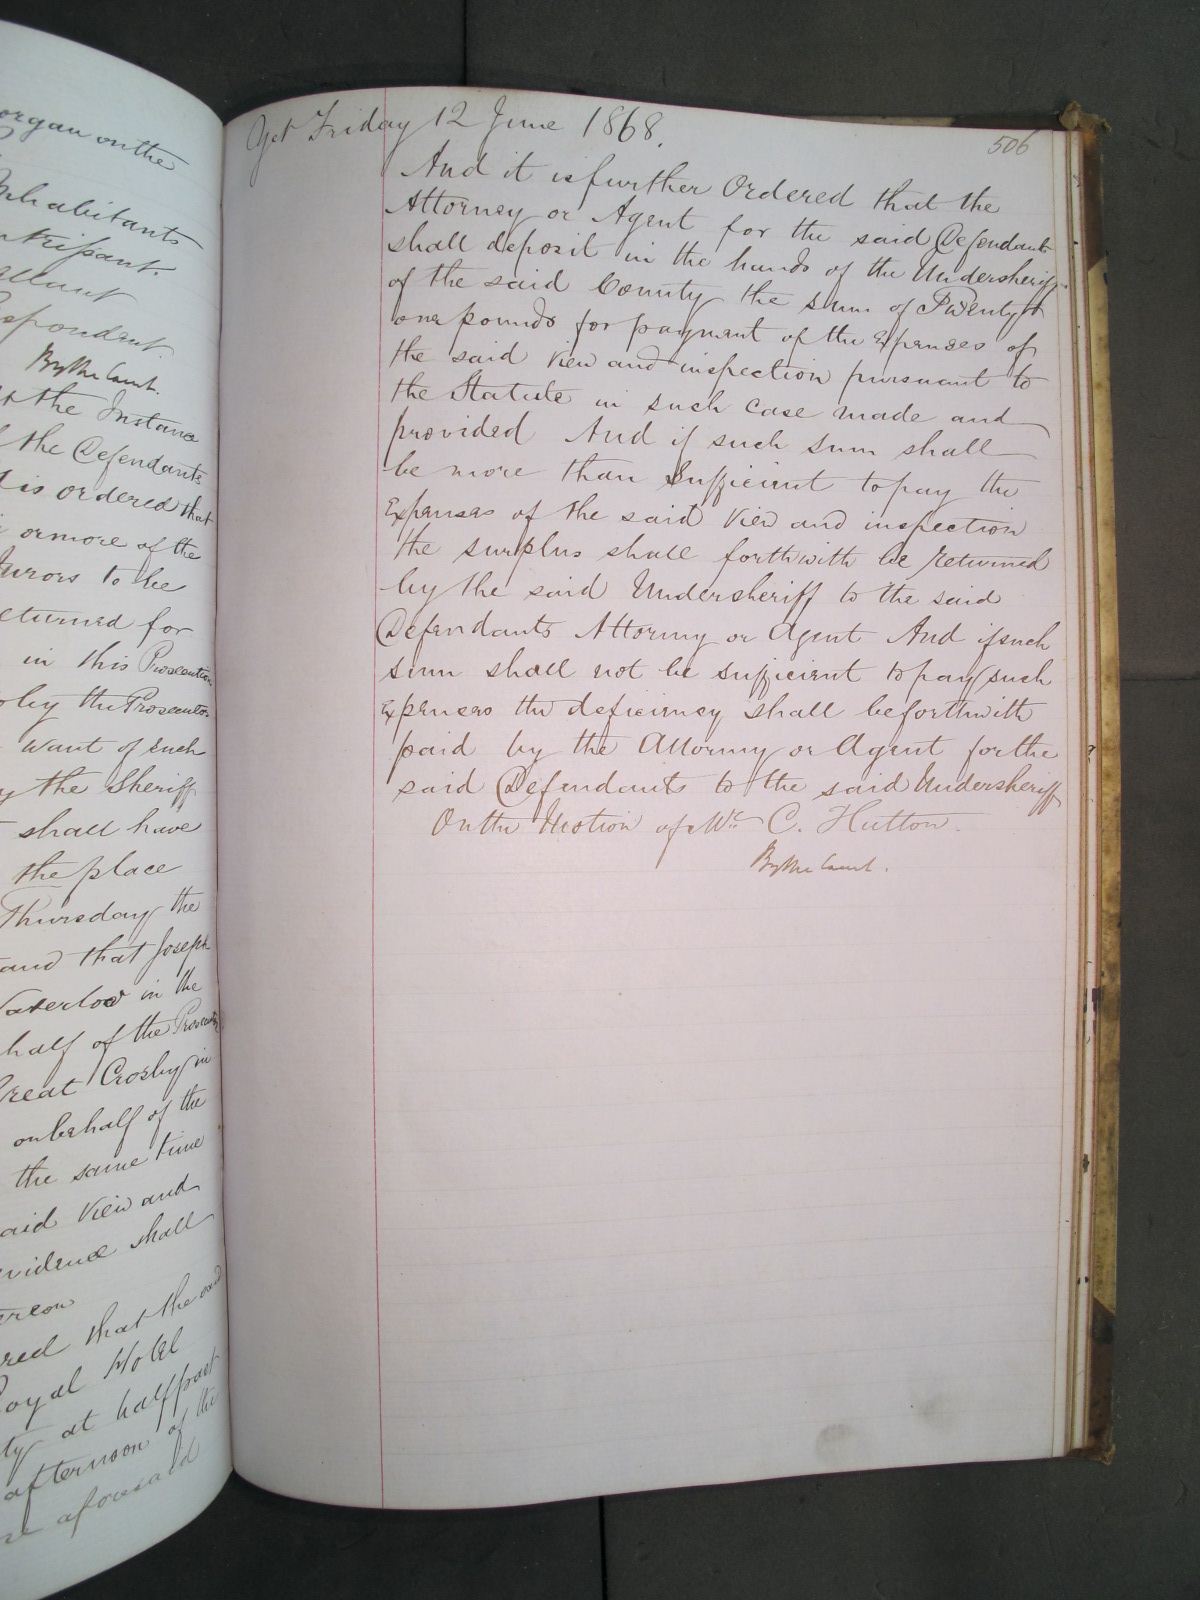 organ on the
Inhabitants
ntrissant.
ellant
espondent.
By the Court.
At the Instance
of the Defendants
It is ordered that
or more of the
Jurors to be
returned for
in this Prosecution
by the Prosecutor
want of such
by the Sheriff
shall have
the place
Thursday the
and that Joseph
Waterloo in the
half of the Prosecutor
Great Crosby in
on behalf of the
the same time
said View and
evidence shall
ereon
red that the said
Royal Hotel
ty at half past
afternoon of the
aforesaid
Yet Friday 12 June 1868.
506
And it is further Ordered that the
Attorney or Agent for the said Defendants
shall deposit in the hands of the Undersheriff
of the said County the sum of Twenty
one pounds for payment of the Expenses of
the said View and inspection pursuant to
the Statute in such case made and
provided And if such sum shall
be more than Sufficient to pay the
Expenses of the said View and inspection
the surplus shall forthwith be returned
by the said Undersheriff to the said
Defendants Attorney or Agent And if such
sum shall not be sufficient to pay such
Expenses the deficiency shall be forthwith
paid by the Attorney or Agent for the
said Defendants to the said Undersheriff
On the Motion of Mr. C. Hutton.
By the Court.